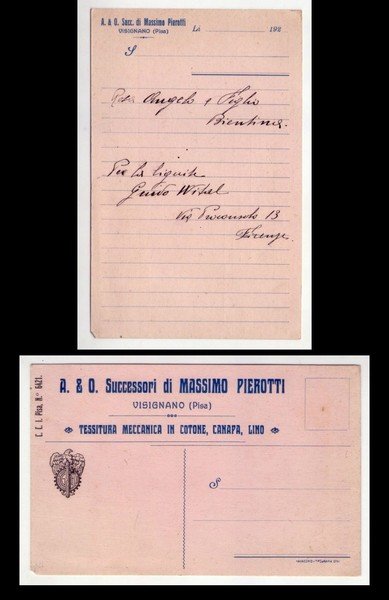 A. & O. Succ. di Massimo Pierotti
VISIGNANO (Pisa)
Lì 192
S
Angelo e Figlio
Bientina.
Per la lignite
Guido
Via 13
Firenze
C. C. I. Pisa, N.° 6421.
A. & O. Successori di MASSIMO PIEROTTI
VISIGNANO (Pisa)
TESSITURA MECCANICA IN COTONE, CANAPA, LINO
S